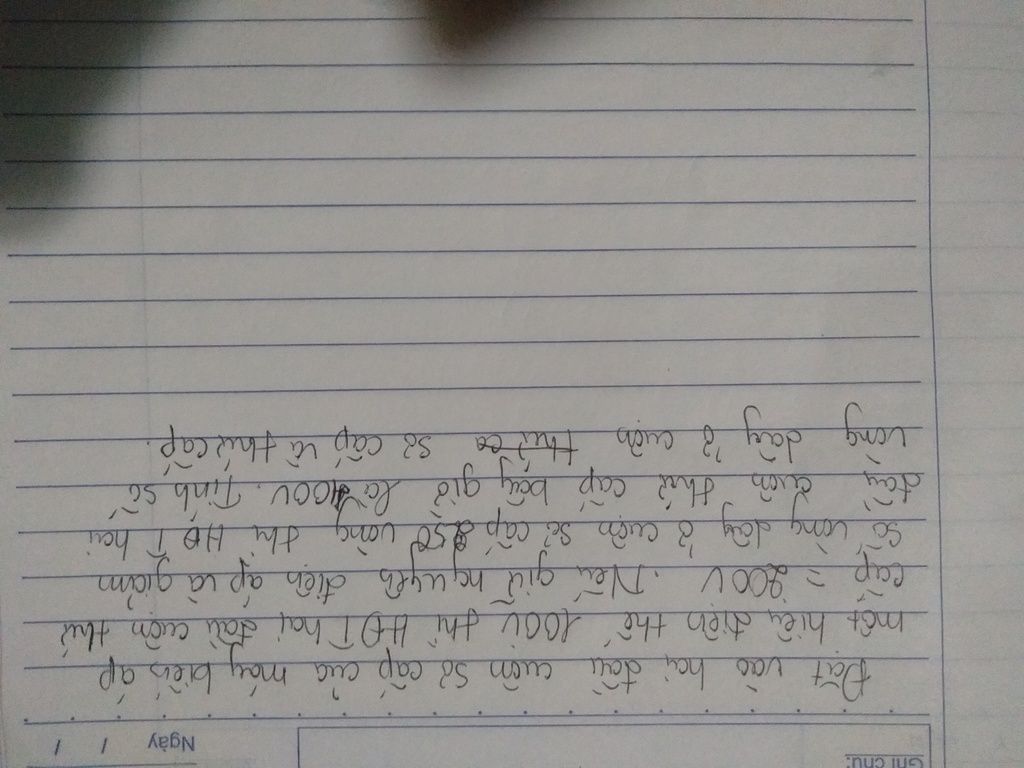 Ghi chú:
Ngày / /
Đặt vào hai đầu cuộn sơ cấp của máy biến áp
một hiệu điện thế 100V thì HĐT hai đầu cuộn thứ
cấp = 200V. Nếu giữ nguyên điện áp và giảm
số vòng dây ở cuộn sơ cấp 250 vòng thì HĐT hai
đầu cuộn thứ cấp bây giờ là 400V. Tính số
vòng dây ở cuộn sơ cấp và thứ cấp.